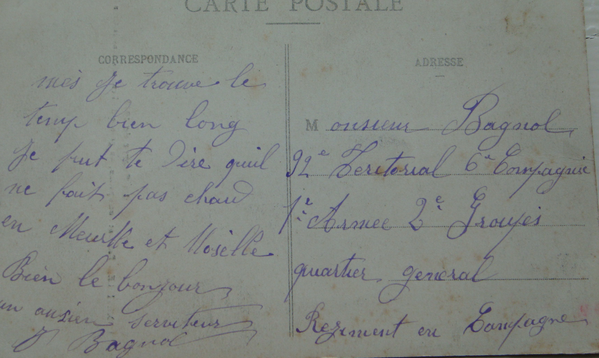 CARTE POSTALE
CORRESPONDANCE
mes je trouve le
temp bien long
je put te dire quil
ne fait pas chaud
en Meurthe et Moselle
Bien le bonjour
un ansien serviteur
Bagnol
ADRESSE
Monsieur Bagnol
92e Teritorial 6e Compagnie
1re Armee 2e Groupes
quartier general
Regiment en Campagne